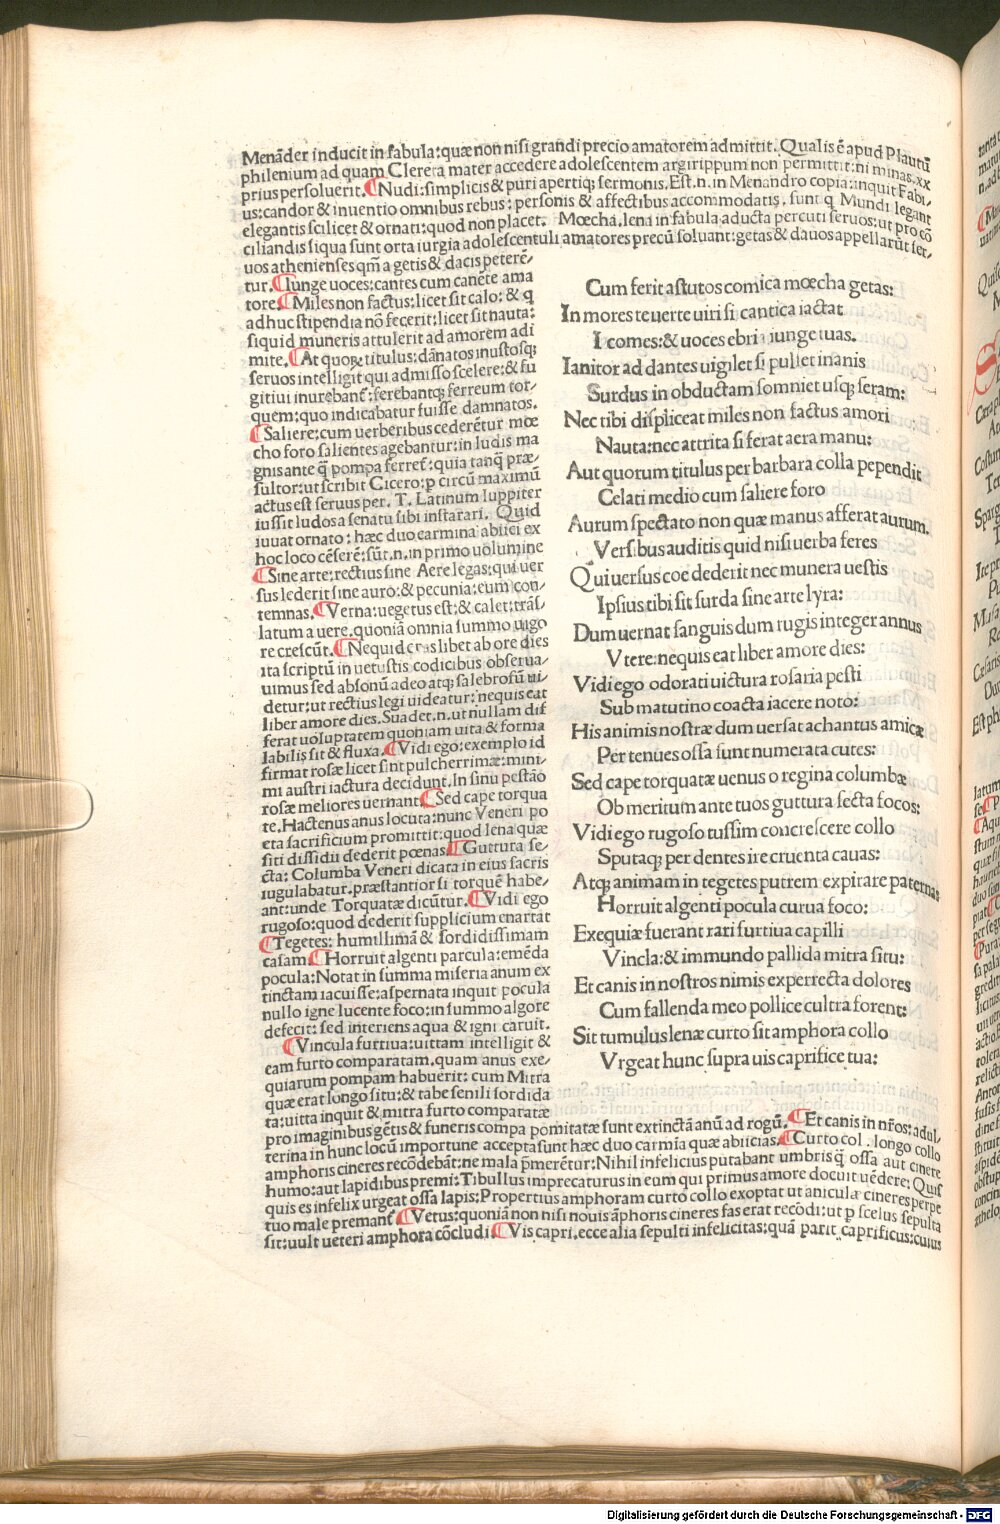 Menãder inducit in fabula:quæ non nisi grandi precio amatorem admittit. Qualis ē apud Plautū
philenium ad quam Clerera mater accedere adolescentem argirippum non permittit:ni minas.xx
prius persoluerit. ¶Nudi:simplicis & puri apertiq; sermonis.Est.n.in Menandro copia:inquit Fabi-
us:candor & inuentio omnibus rebus: personis & affectibus accommodatis, sunt q Mundi legant
elegantis scilicet & ornati:quod non placet. Mœcha,lena in fabula aducta percuti seruos:ut pro cō
ciliandis siqua sunt orta iurgia adolescentuli amatores precū soluant:getas & dauos appellarūt ser-
uos athenienses qm̄ a getis & dacis peterē-
tur.¶Iunge uoces:cantes cum canēte ama
tore.¶Miles non factus:licet sit calo: & q
adhuc stipendia nō fecerit:licet sit nauta:
siquid muneris attulerit ad amorem adi
mite.¶At quoꝝ titulus:dānatos inustosq;
seruos intelligit qui admisso scelere:& fu
gitiui inurebant̃:ferebantq; ferreum tor-
quem:quo indicabatur fuisse damnatos.
¶Saliere:cum uerberibus cederētur mœ
cho foro salientes agebantur:in ludis ma
gnis ante q̄ pompa ferret̃:quia tanq̄ præ-
sultor:ut scribit Cicero:p circū maximū
actus est seruus per. T. Latinum Iuppiter
iussit ludos a senatu sibi instarari. Quid
iuuat ornato: hæc duo earmina abiici ex
hoc loco cēserē:sūt.n.in primo uolumine
¶Sine arte:rectius sine Aere legas:qui uer
sus lederit sine auro:& pecunia:eum con-
temnas.¶Verna:uegetus est:& calet:trās-
latum a uere.quoniā omnia summo uigo
re crescūt.¶Nequid cras liber ab ore dies
ita scriptū in uetustis codicibus obserua-
uimus sed absonū adeo atq; salebrosū ui-
detur:ut rectius legi uideatur:nequis eat
liber amore dies.Suadet.n.ut nullam dif
ferat uoluptatem quoniam uita & forma
labilis sit & fluxa.¶Vidi ego:exemplo id
firmat rosæ licet sint pulcherrimæ:mini-
mi austri iactura decidunt.In sinu pestāo
rosæ meliores uernant¶Sed cape torqua
te.Hactenus anus locuta:nunc Veneri po
eta sacrificium promittit:quod lena quæ
siti dissidii dederit pœnas.¶Guttura se-
cta: Columba Veneri dicata in eius sacris
iugulabatur.præstantior si torquē habe-
ant:unde Torquatæ dicūtur.¶Vidi ego
rugoso:quod dederit supplicium enartat
¶Tegetes: humillimā & sordidissimam
casam.¶Horruit algenti parcula:emēda
pocula:Notat in summa miseria anum ex
tinctam iacuisse:aspernata inquit pocula
nullo igne lucente foco:in summo algore
defecit: sed interiens aqua & igni caruit.
¶Vincula furtiua:uittam intelligit &
eam furto comparatam.quam anus exe-
quiarum pompam habuerit: cum Mitra
quæ erat longo situ:& tabe senili sordida
ta:uitta inquit & mitra furto comparatæ
pro imaginibus gētis & funeris compa pomitatæ sunt extinctā anū ad rogū.¶Et canis in nr̄os:adul-
terina in hunc locū importune accepta sunt hæc duo carmīa quæ abiicias.¶Curto col. longo collo
amphoris cineres recōdebāt:ne mala p̄merētur:Nihil infelicius putabant umbris q̄ ossa aut cinere
humo:aut lapidibus premi:Tibullus imprecaturus in eum qui primus amore docuit uēdere: Quis
quis es infelix urgeat ossa lapis:Propertius amphoram curto collo exoptat ut anicula cineres perpe
tuo male premant̃ ¶Vetus:quoniā non nisi nouis āphoris cineres fas erat recōdi:ut p scelus sepulta
sit:uult ueteri amphora cōcludi.¶Vis capri,ecce alia sepulti infelicitas:quā parit caprificus:cuius
Cum ferit astutos comica mœcha getas:
In mores te uerte uiri si cantica iactat
I comes:& uoces ebria iunge tuas.
Ianitor ad dantes uigilet si pulset inanis
Surdus in obductam somniet usq; seram:
Nec tibi displiceat miles non factus amori
Nauta:nec attrita si ferat aera manu:
Aut quorum titulus per barbara colla pependit
Celati medio cum saliere foro
Aurum spectato non quæ manus afferat aurum.
Versibus auditis quid nisi uerba feres
Qui uersus coe dederit nec munera uestis
Ipsius tibi sit surda sine arte lyra:
Dum uernat sanguis dum rugis integer annus
Vtere:nequis eat liber amore dies:
Vidi ego odorati uictura rosaria pesti
Sub matutino coacta iacere noto:
His animis nostræ dum uersat achantus amicæ
Per tenues ossa sunt numerata cutes:
Sed cape torquatæ uenus o regina columbæ
Ob meritum ante tuos guttura secta focos:
Vidi ego rugoso tussim concrescere collo
Sputaq; per dentes ire cruenta cauas:
Atq; animam in tegetes putrem expirare paternas
Horruit algenti pocula curua foco:
Exequiæ fuerant rari furtiua capilli
Vincla:& immundo pallida mitra situ:
Et canis in nostros nimis experrecta dolores
Cum fallenda meo pollice cultra forent:
Sit tumulus lenæ curto sit amphora collo
Vrgeat hunc supra uis caprifice tua:
Digitalisierung gefördert durch die Deutsche Forschungsgemeinschaft - DFG